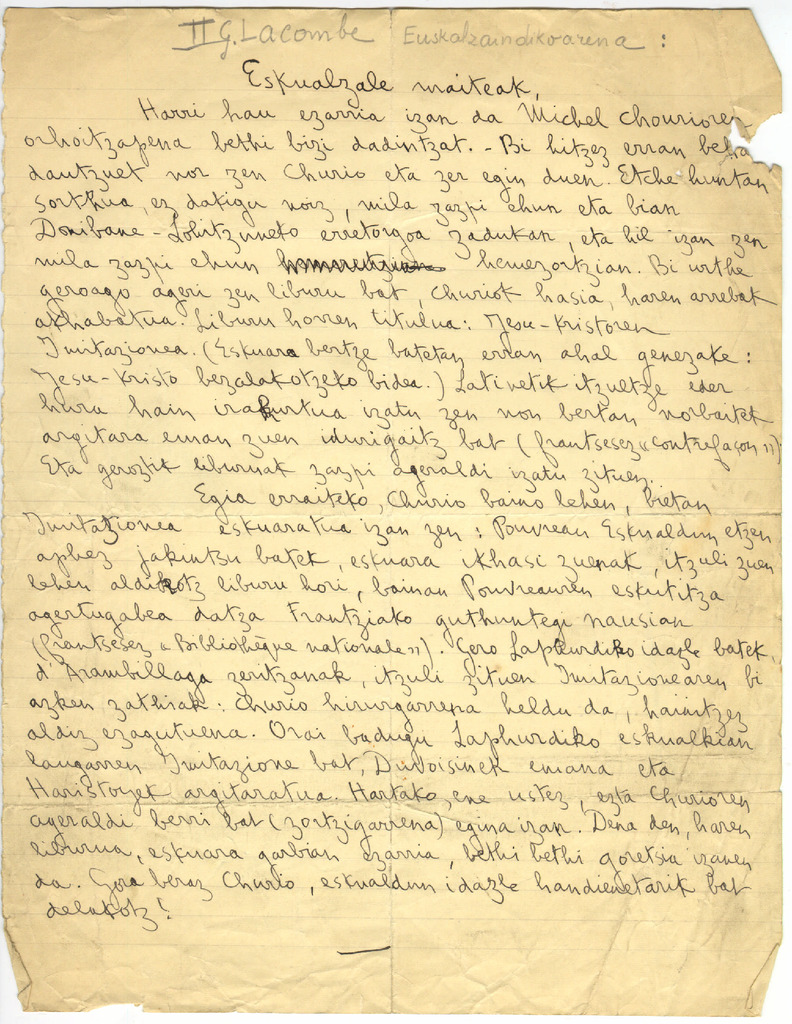 II G. Lacombe Euskalzaindikoarena :
Eskualzale maiteak,
Harri hau ezarria izan da Michel Chourioren
orhoitzapena bethi bizi dadintzat. - Bi hitzez erran behar
dautzuet nor zen Churio eta zer egin duen. Etche huntan
sorthua, ez dakigu noiz, mila zazpi ehun eta bian
Donibane-Lohitzuneko erretorgoa zadukan, eta hil izan zen
mila zazpi ehun hemezortzian. Bi urthe
geroago ageri zen liburu bat, Churiok hasia, haren arrebak
akhabatua. Liburu horren titulua : Jesu-Kristoren
Imitazionea. (Eskuara bertze batetan erran ahal genezake :
Jesu-Kristo bezalakotzeko bidea.) Latinetik itzultze eder
hura hain irakurtua izatu zen non bertan norbaitek
argitara eman zuen idurigaitz bat (frantsesez « contrefaçon »)
Eta geroztik liburuak zazpi ageraldi izatu zituen.
Egia erraiteko, Churio baino lehen, bietan
Imitazionea eskuaratua izan zen : Pouvreau Eskualdun etzen
aphez jakintsu batek, eskuara ikhasi zuenak, itzuli zuen
lehen aldikotz liburu hori, bainan Pouvreauren eskutitza
agertugabea datza Frantziako guthuntegi nausian
(frantsesez « Bibliothèque nationale »). Gero Laphurdiko idazle batek,
d'Arambillaga zeritzanak, itzuli zituen Imitazionearen bi
azken zathiak : Churio hirurgarrena heldu da, hainitzez
aldiz ezagutuena. Orai badugu Laphurdiko eskualkian
laugarren Imitazione bat, Duvoisinek emana eta
Haristoyek argitaratua. Hartako, ene ustez, ezta Churioren
ageraldi berri bat (zortzigarrena) egina izan. Dena den, haren
liburua, eskuara garbian ezarria, bethi bethi goretsia izanen
da. Gora beraz Churio, eskualdun idazle handienetarik bat
delakotz!